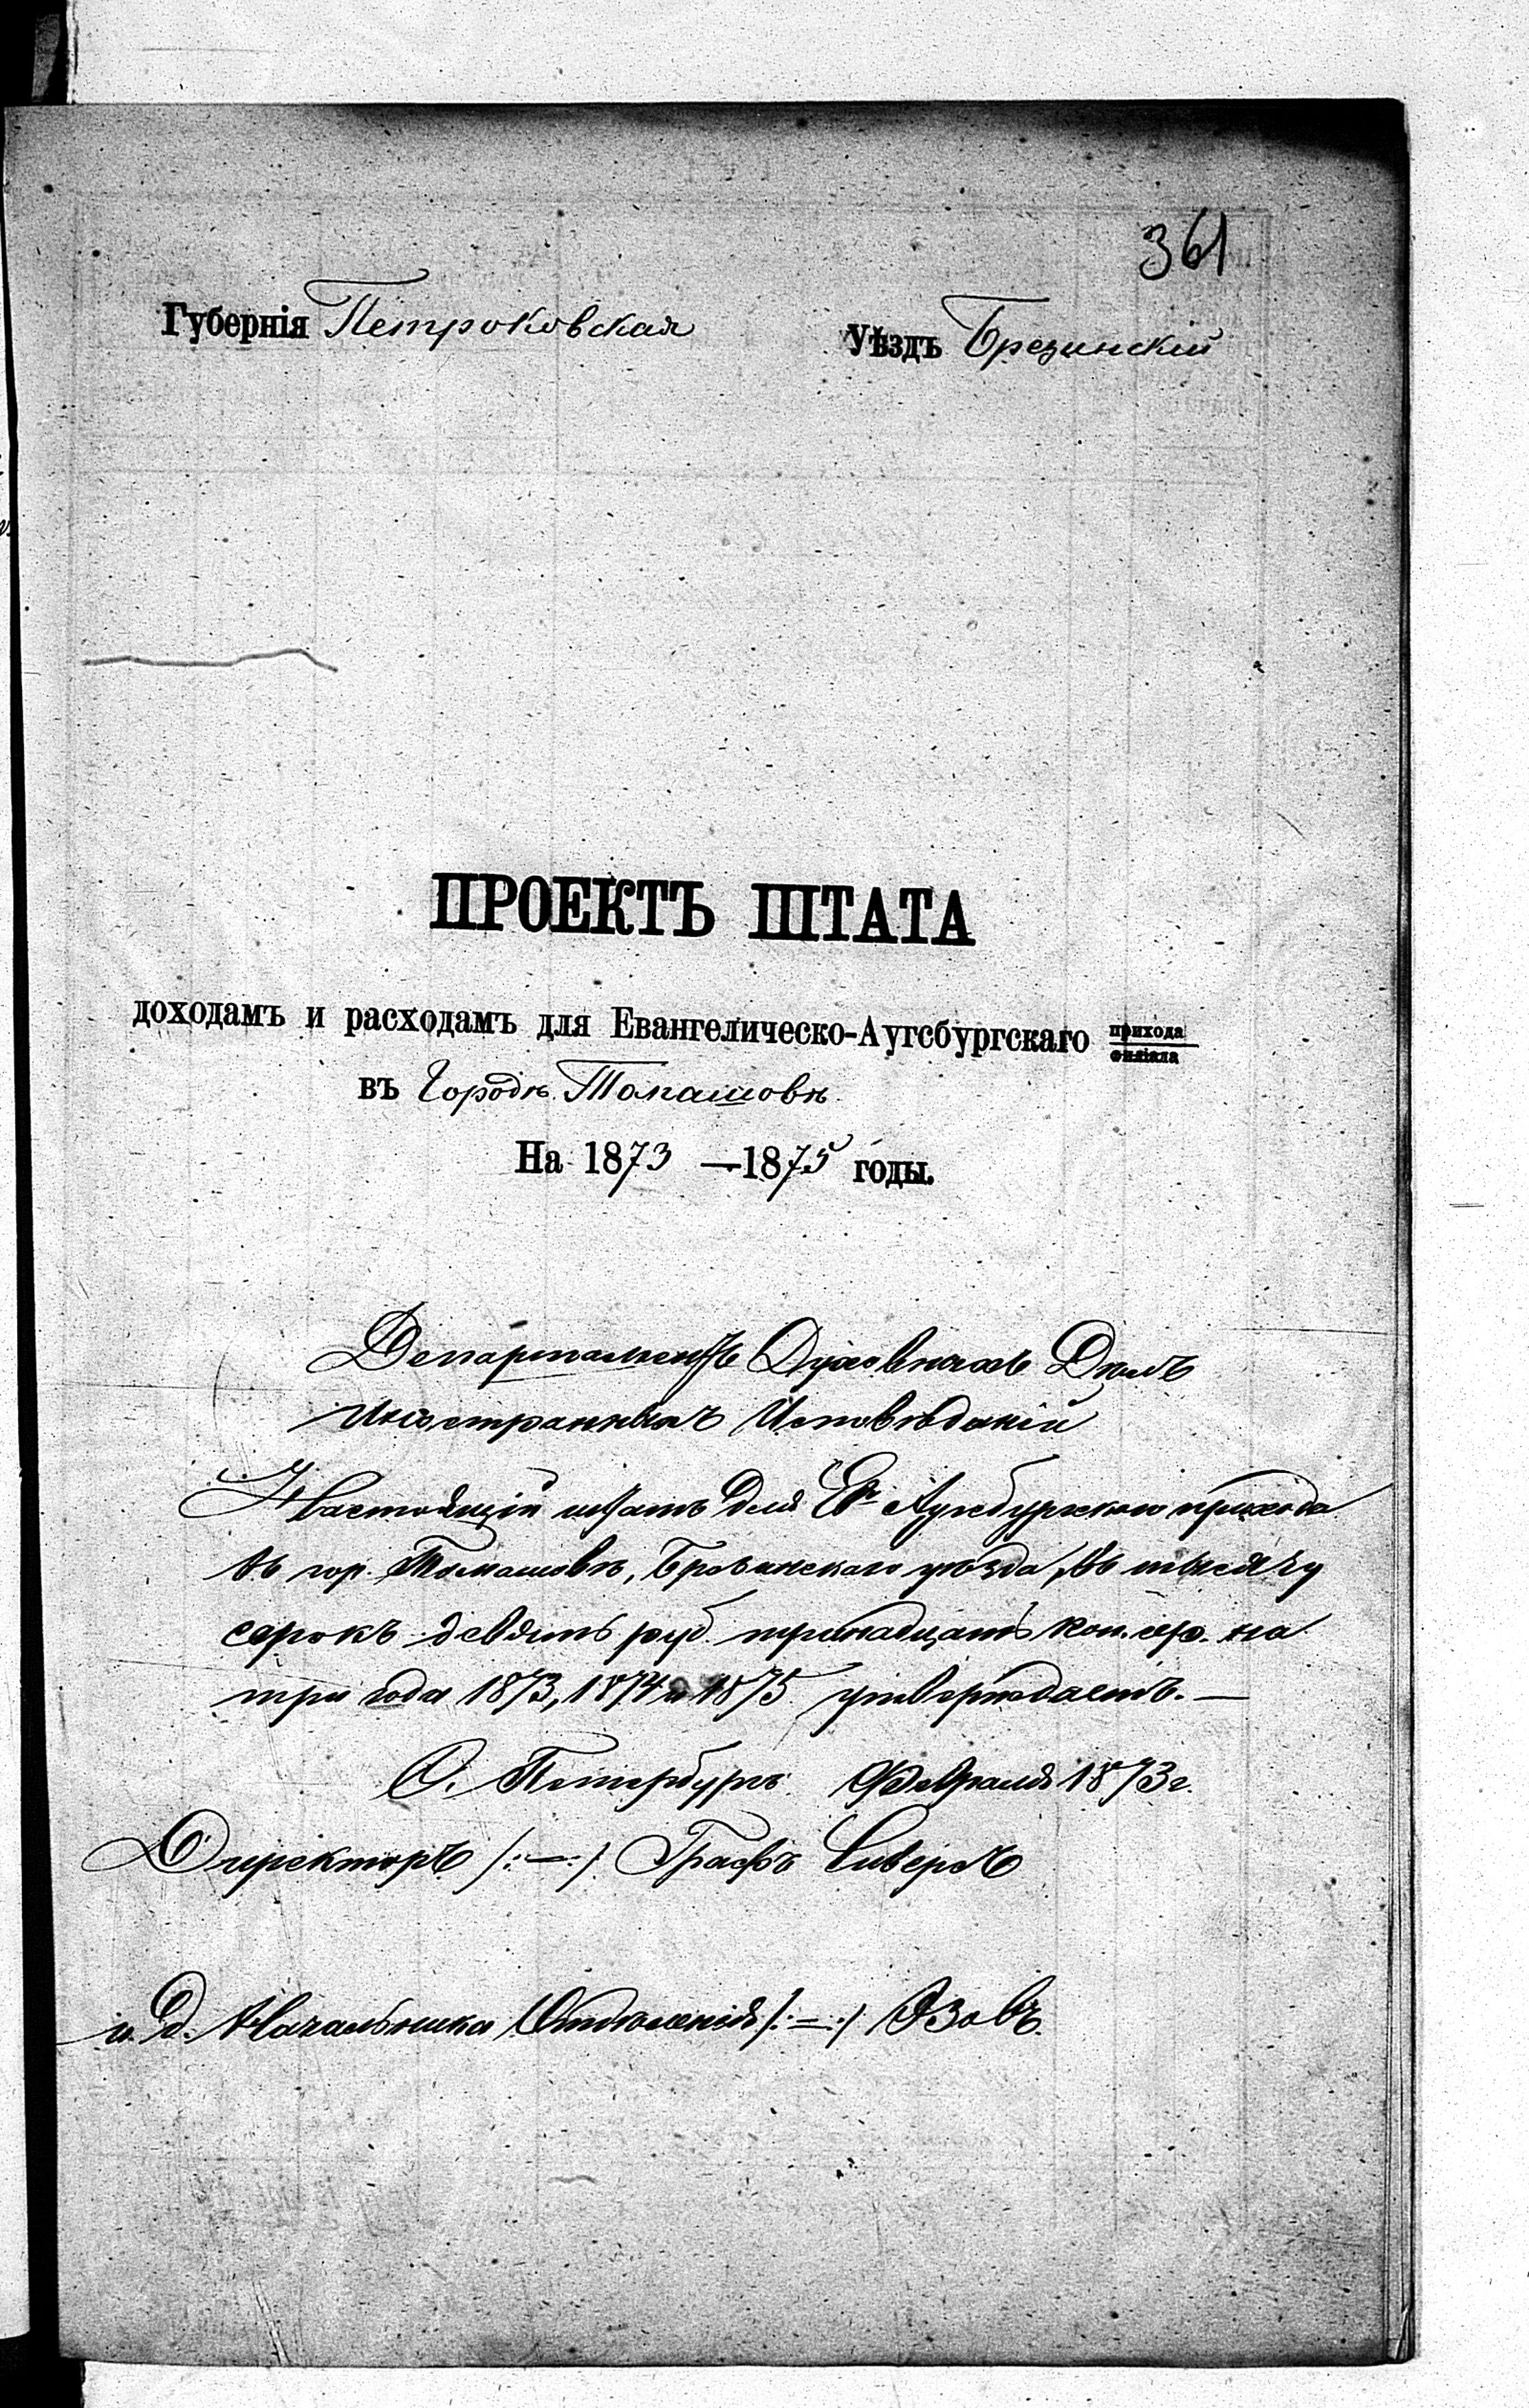 361
Губернія Петроковская Уѣздъ Брезинскій
ПРОЕКТЪ ШТАТА
доходамъ и расходамъ для Евангелическо-Аугсбургскаго прихода
филіала
въ Городѣ Томашовѣ
На 1873 — 1875 годы.
Департаментъ Духовныхъ Дѣлъ
Иностранныхъ Исповѣданій
Настоящій штатъ для Ев. Аугсбургскаго прихода
въ гор. Томашовѣ, Брезинскаго уѣзда, въ тысячу
сорокъ девять руб. тринадцать коп. сер. на
три года 1873, 1874 и 1875 утверждаетъ. —
С. Петербургъ. Февраля 1873 г.
Директоръ /:—:/ Графъ Сиверсъ
и. д. Начальника Отдѣленія /:—:/